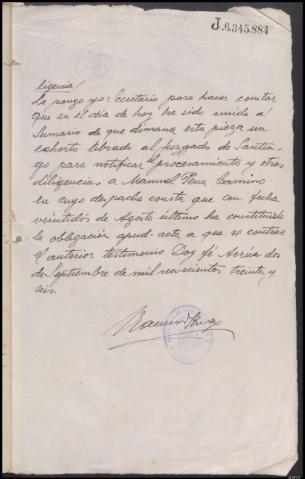 J.6.345.884
ligencia/
La pongo yo: Secretario para hacer constar
que en el dia de hoy ha sido unido al
Sumario de que dimana esta pieza un
exhorto librado al Juzgado de Santia-
go para notificar procesamiento y otras
diligencias a Manuel Pena Camino
en cuyo despacho consta que con fecha
veintidos de Agosto último ha constituido
la obligación apud-acta a que se contrae
el anterior testimonio Doy fé Arzúa dos
de Septiembre de mil novecientos treinta y
seis.